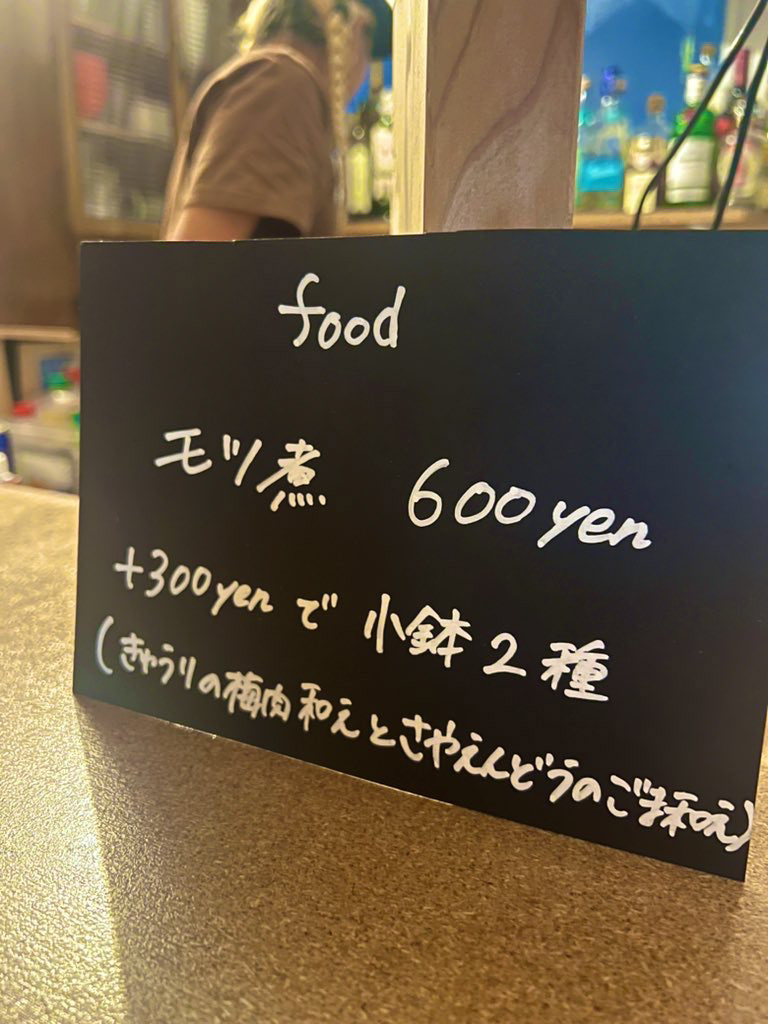 food
モツ煮 600yen
+300yen で 小鉢2種
(きゅうりの梅肉和えとさやえんどうのごま和え)